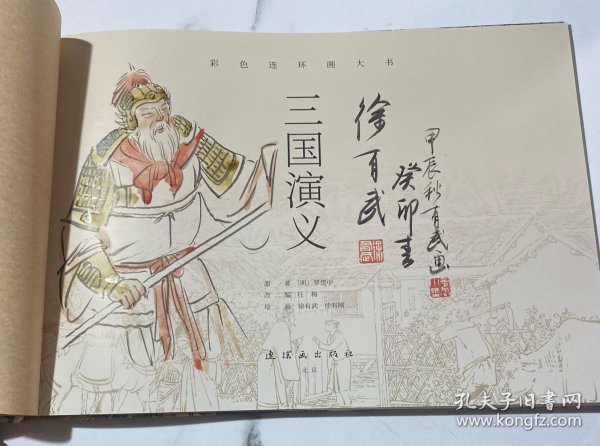 彩色连环画大书
三国演义
徐有武
甲辰秋有武画
癸卯春
原 著 [明] 罗贯中
改 编 任 梅
绘 画 徐有武 徐有刚
连环画出版社
北京
孔夫子旧书网
www.kongfz.com